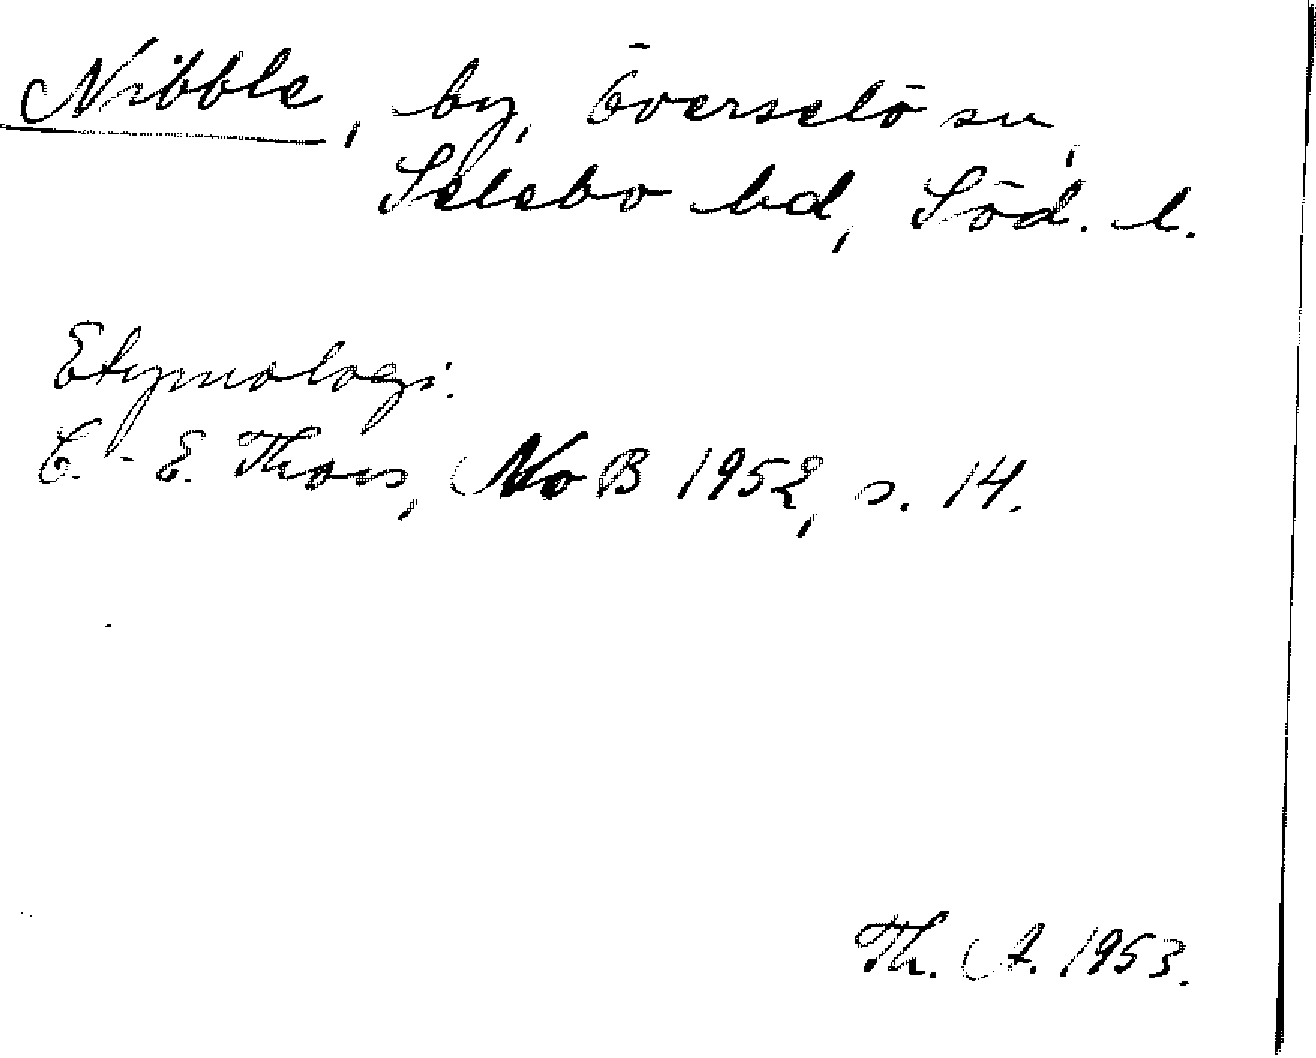 Nibble, by, Överselö sn,
Selebo hd, Söd. l.
Etymologi.
C.-E. Thors, NoB 1952, s. 14.
Th. A. 1953.